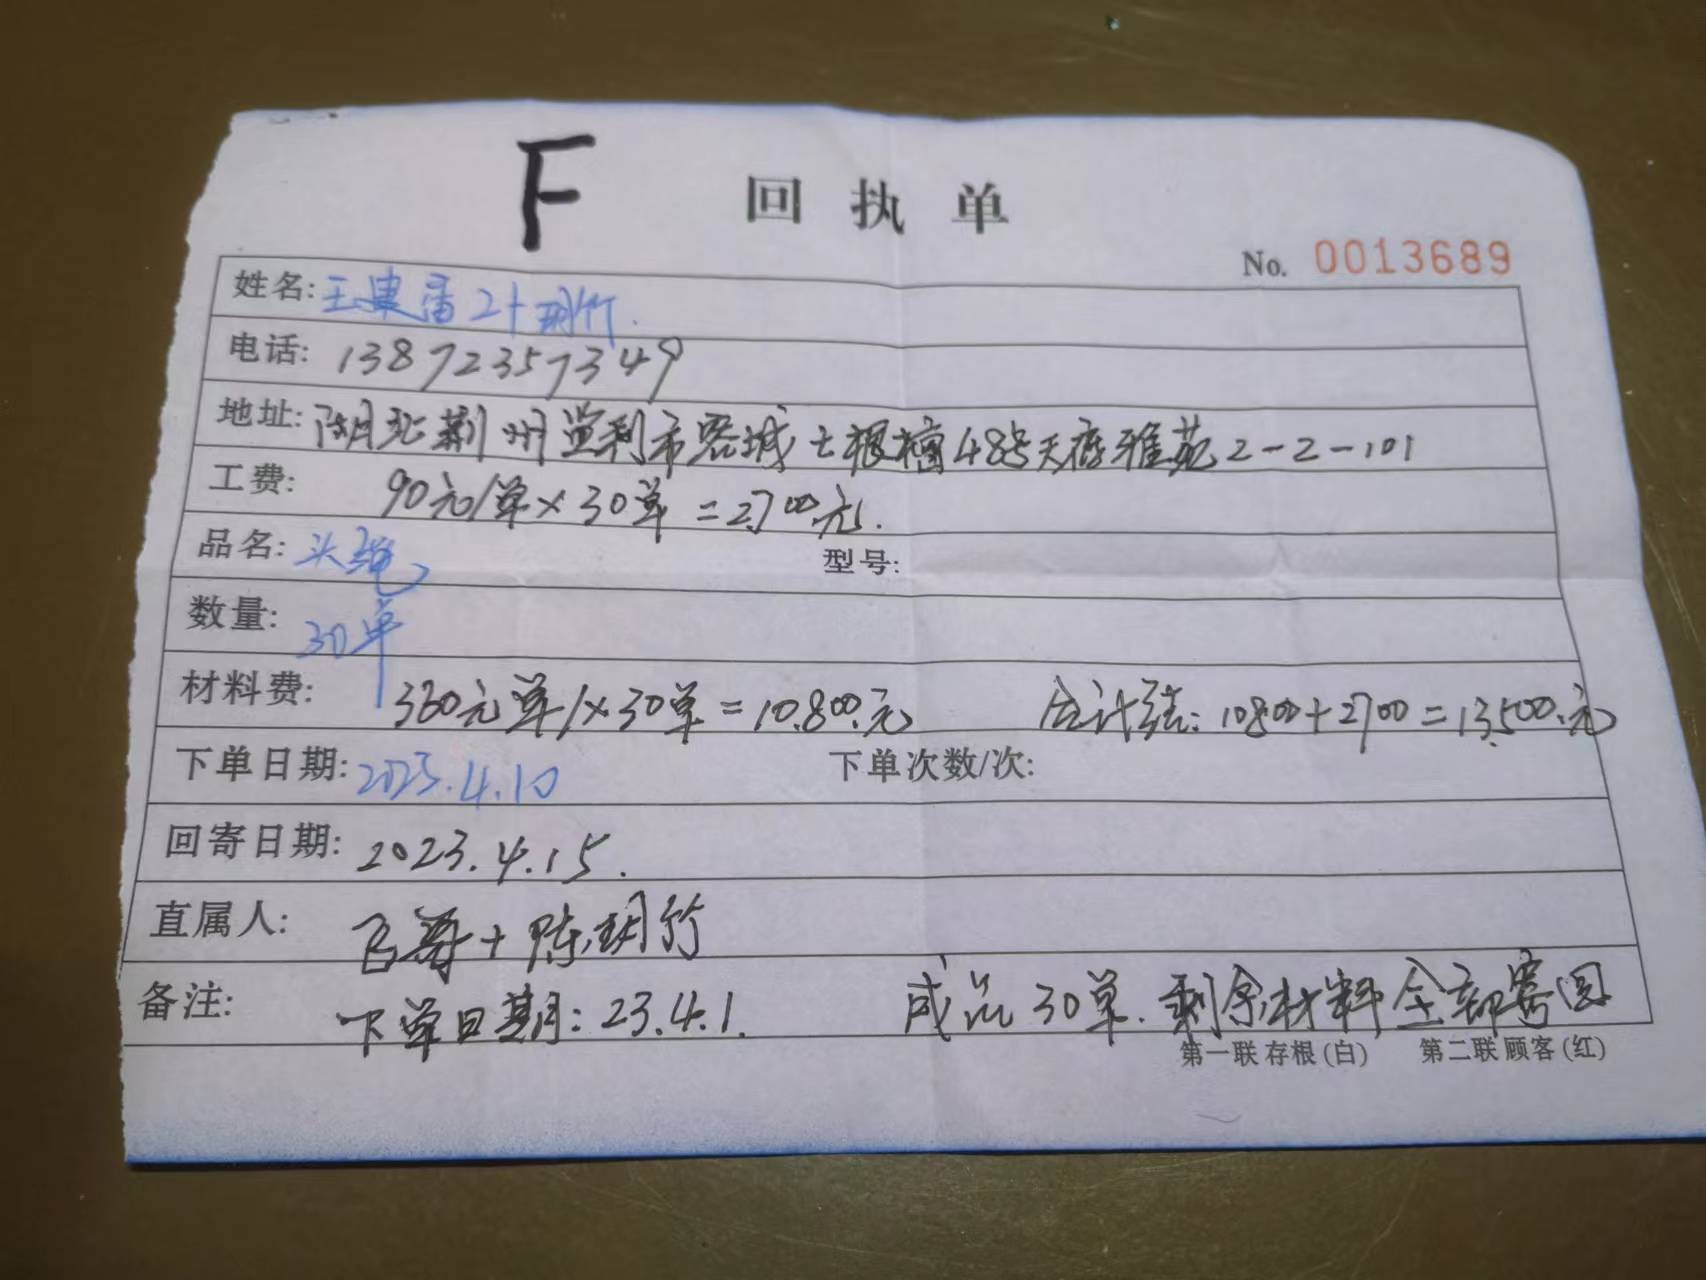 F
回执单
No. 0013689
姓名: 王建雷2十玥竹.
电话: 13872357349
地址: 湖北荆州监利市容城七根檀48号天府雅苑2-2-101
工费: 90元/单×30单=2700元.
品名: 头绳 型号:
数量: 30单
材料费: 360元单/×30单=10.800.元 合计结: 10800+2700=13.500.元
下单日期: 2023.4.10 下单次数/次:
回寄日期: 2023.4.15.
直属人: 飞尊+陈玥竹
备注: 下单日期: 23.4.1. 成品30单.剩余材料全部寄回
第一联存根(白) 第二联顾客(红)